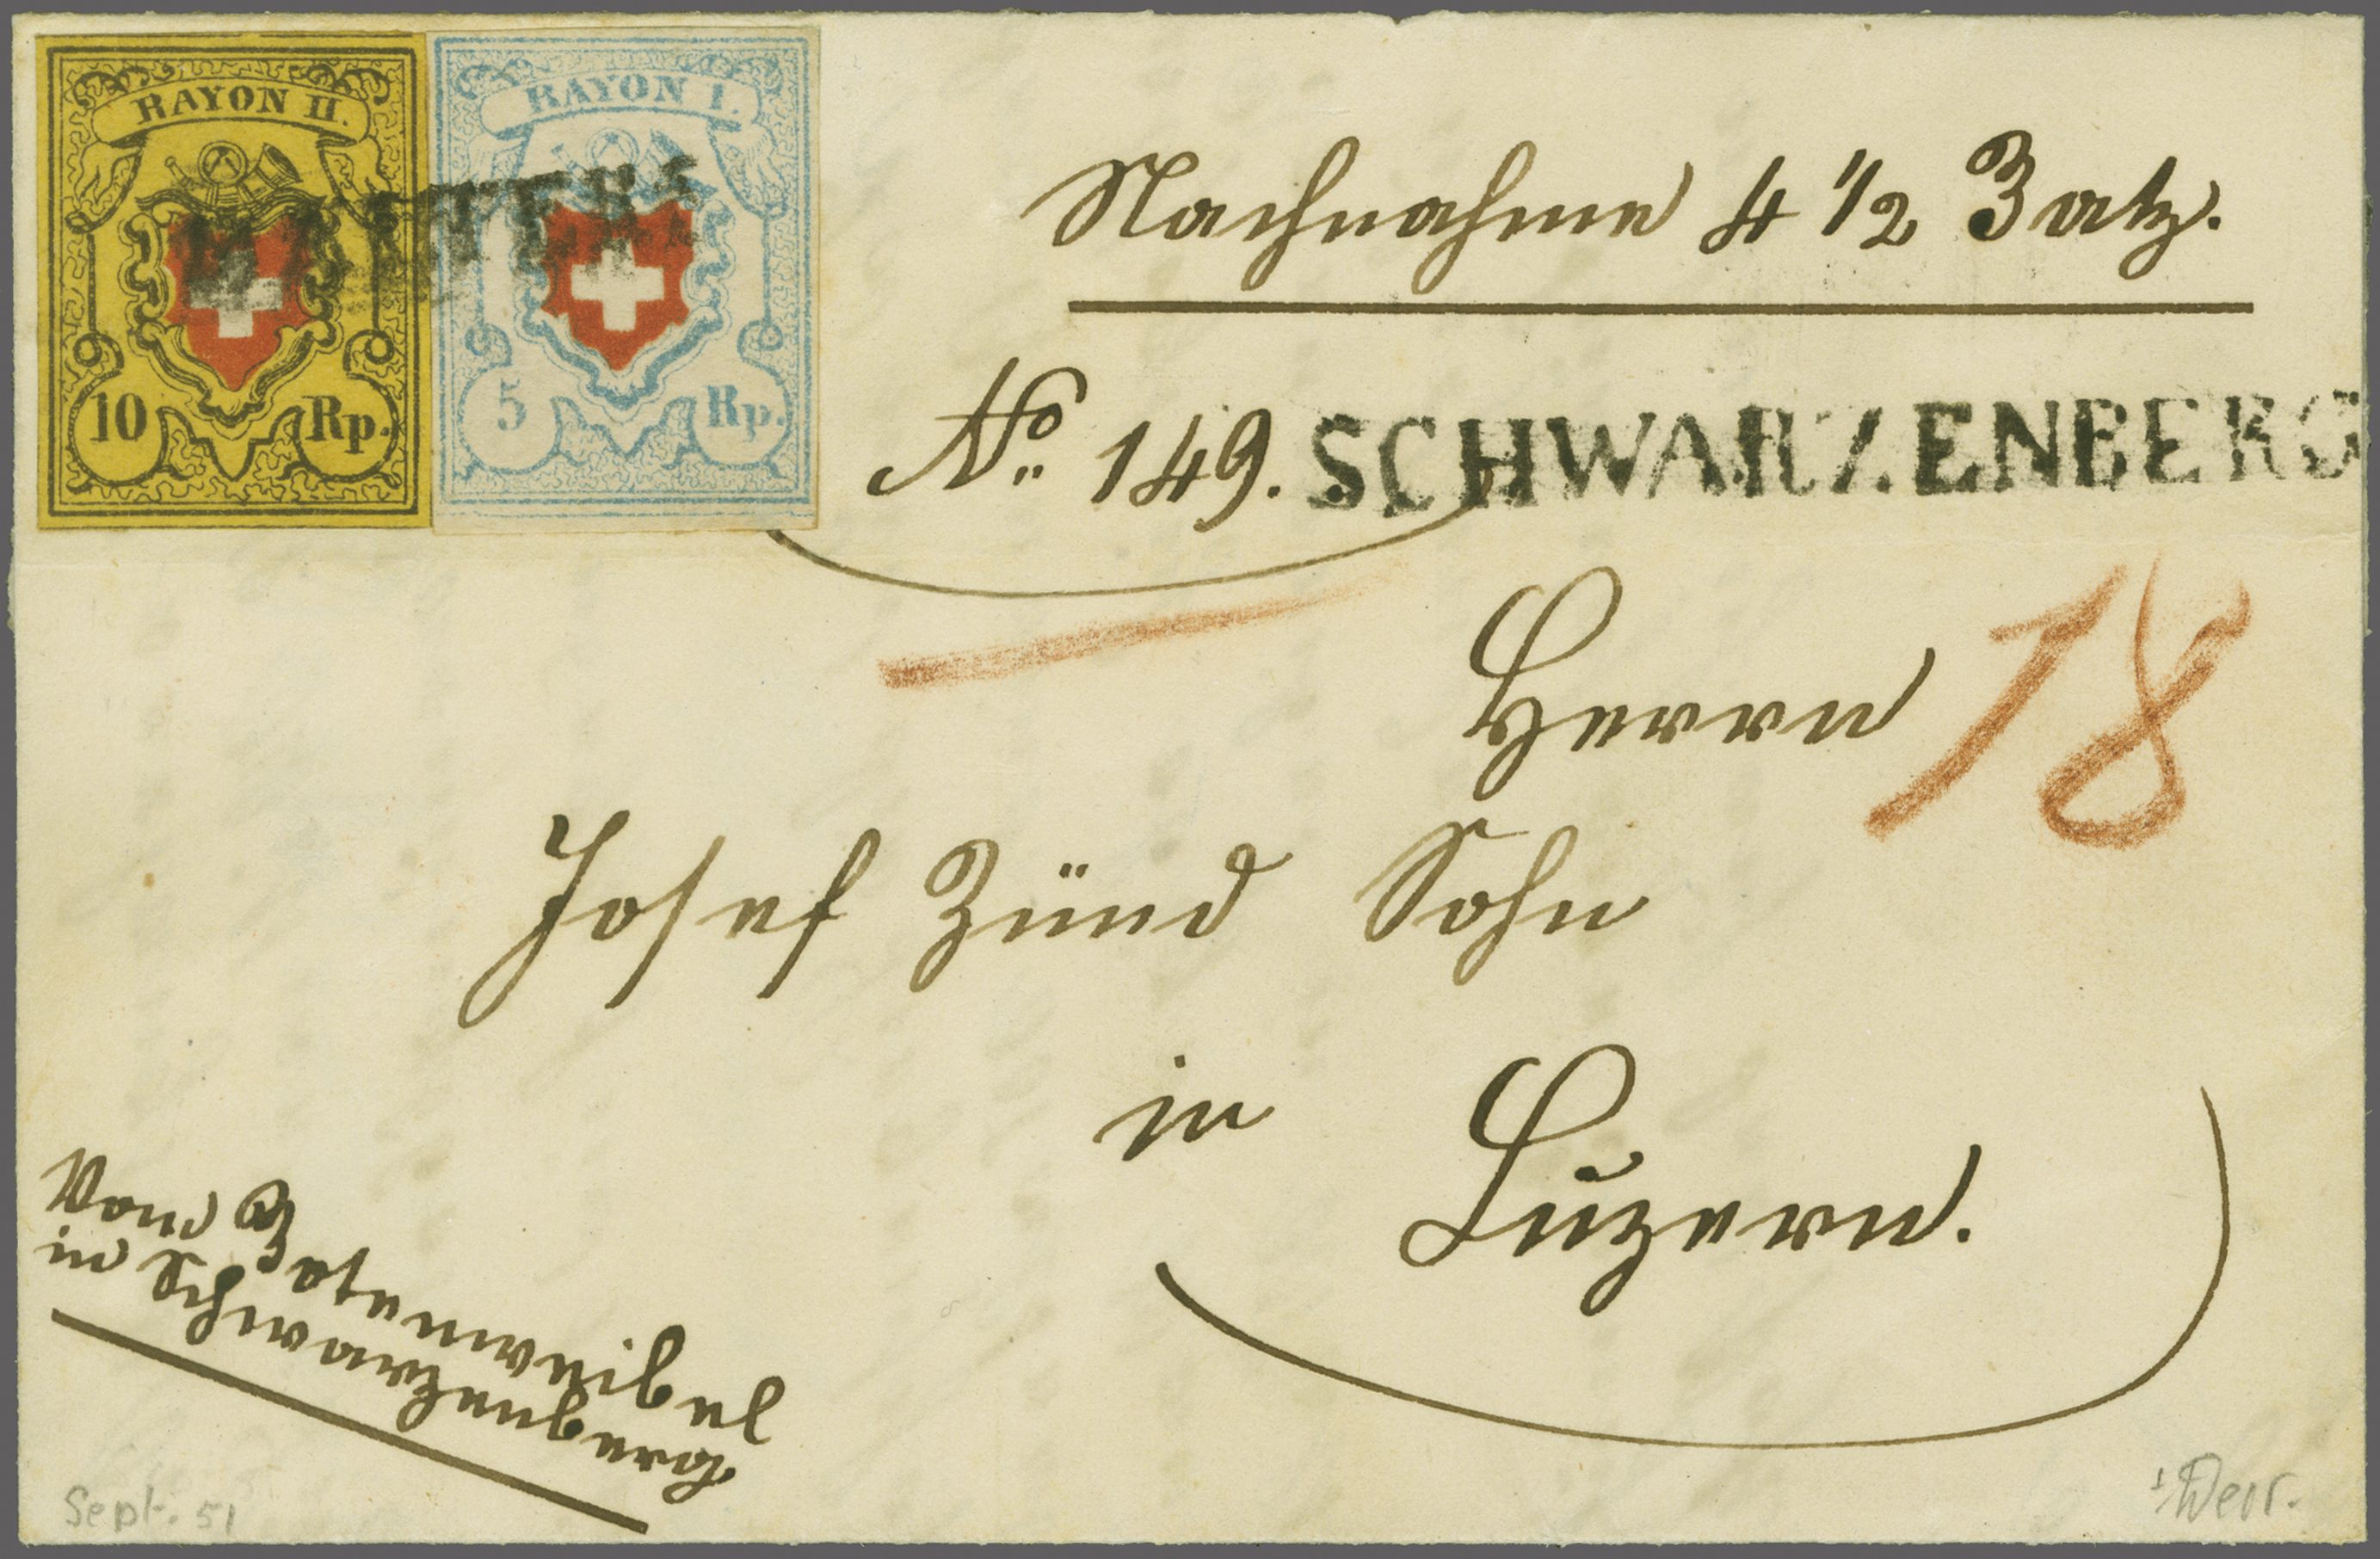 RAYON II.
10 Rp.
RAYON I.
5 Rp.
Nachnahme 4 1/2 Batz.
No. 149.
SCHWARZENBERG
18
Herrn
Josef Zünd Sohn
in Luzern.
Vom
in Schwarzenberg
Sept. 51